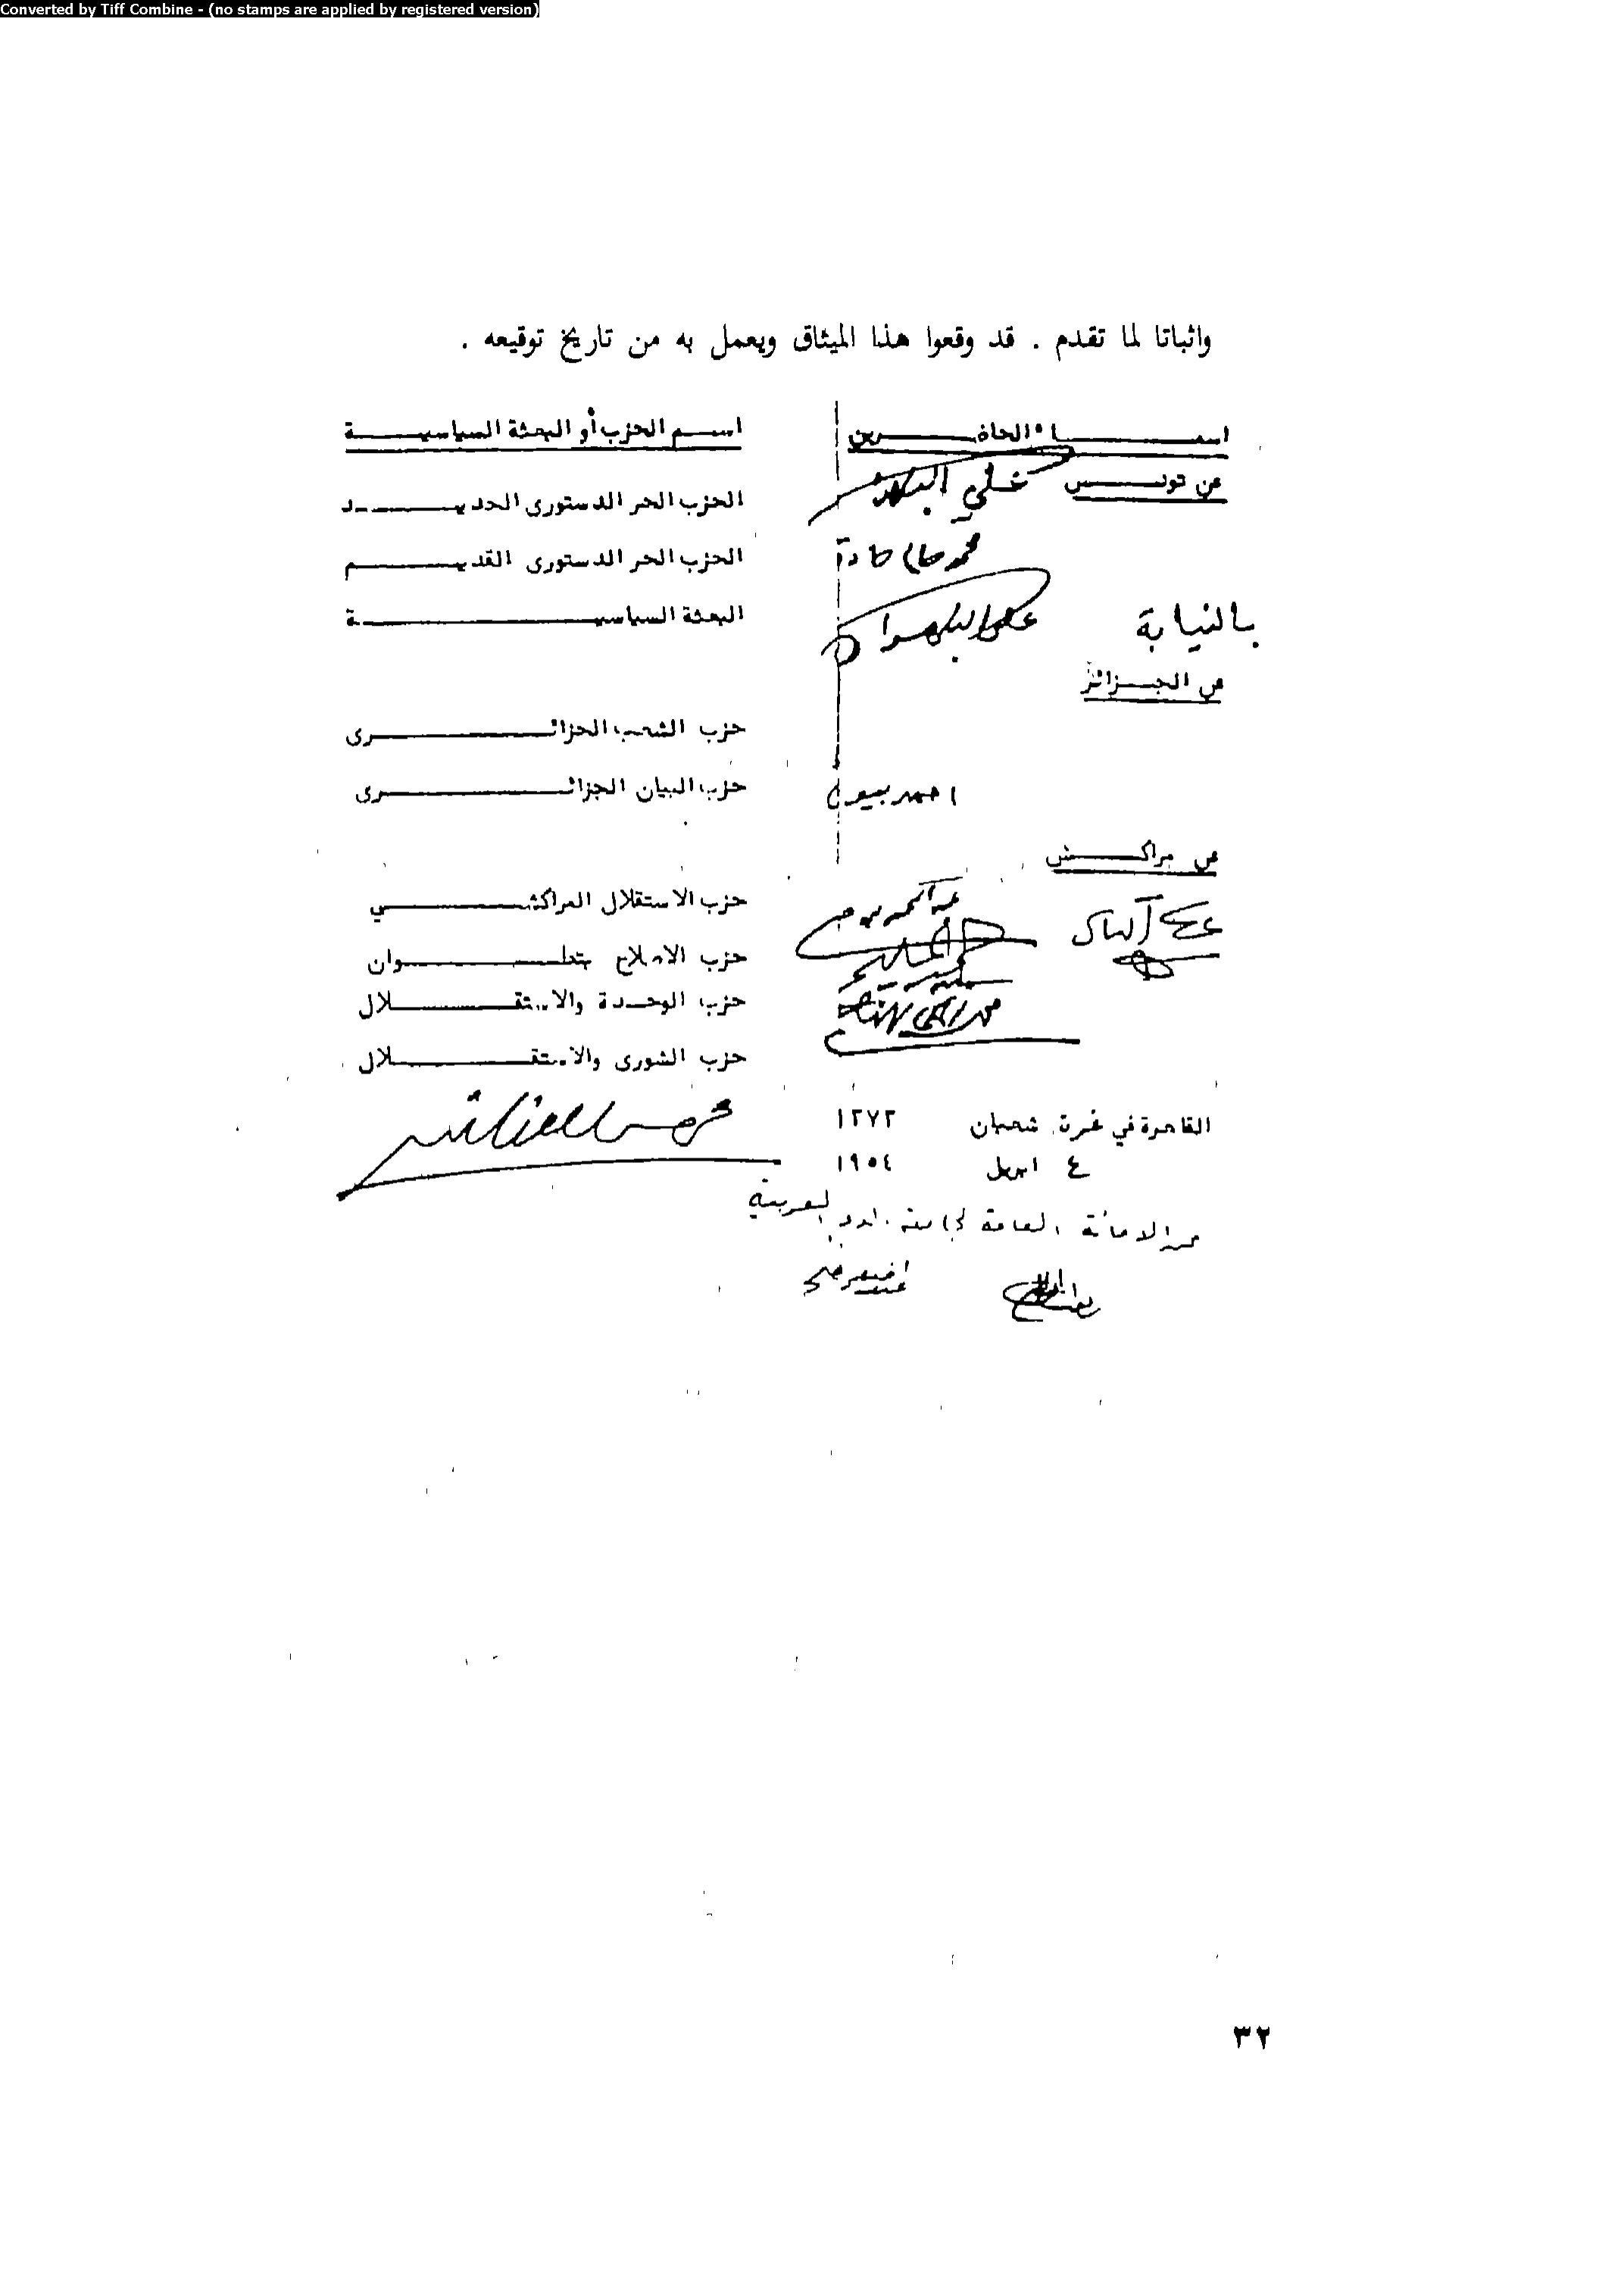 Converted by Tiff Combine - (no stamps are applied by registered version)
واثباتا لما تقدم . قد وقعوا هذا الميثاق ويعمل به من تاريخ توقيعه .
اسماء الحاضرين اسم الحزب أو البعثة السياسية
عن تونس علي البلهوان الحزب الحر الدستورى الجديد
محمد الحزب الحر الدستورى القديم
بالنيابة علي البلهوان البعثة السياسية
عن الجزائر
حزب الشعب الجزائرى
احمد بيوض حزب البيان الجزائرى
عن مراكش
حزب الاستقلال المراكشي
حزب الاصلاح بتطوان
حزب الوحدة والاستقلال
حزب الشورى والاستقلال
القاهرة في غرة شعبان ١٢٧٣
٤ ابريل ١٩٥٤
عن الامانة العامة لجامعة الدول العربية
٣٢